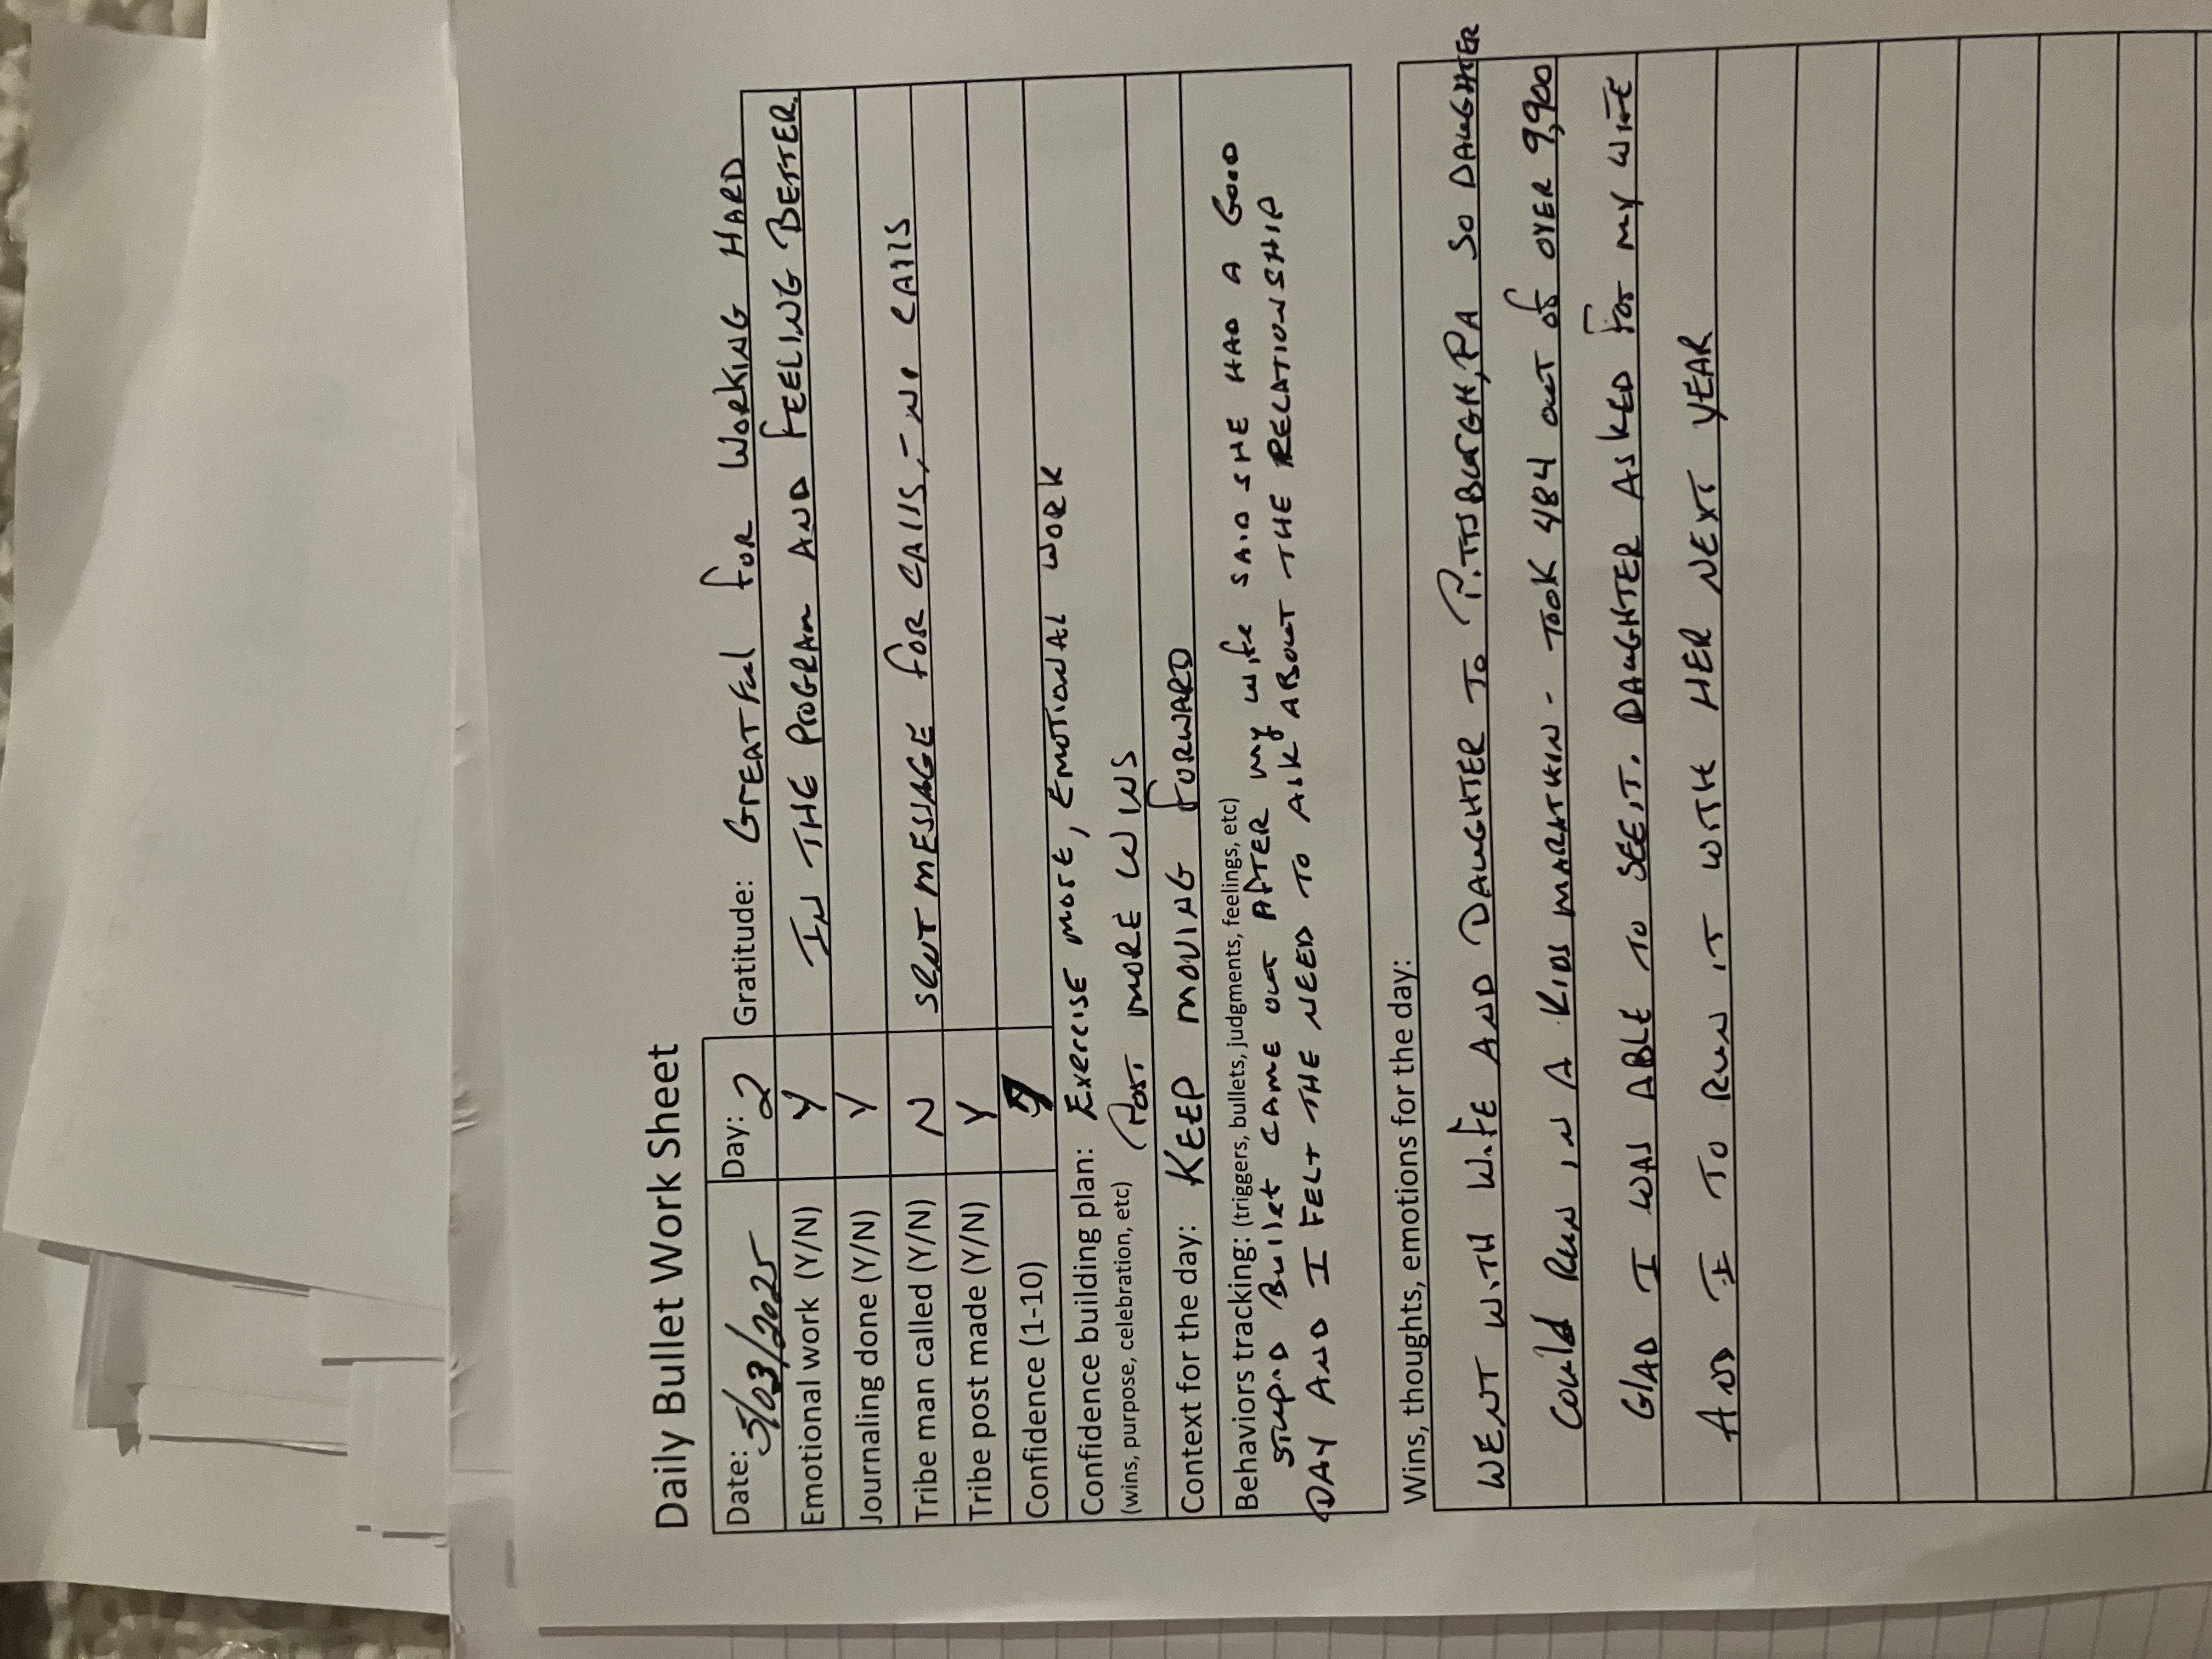 Daily Bullet Work Sheet
Date: 5/03/2025 Day: 2 Gratitude: GrEATFul for Working HARD
Emotional work (Y/N) Y IN THE PROGRAM AND FEELING BETTER.
Journaling done (Y/N) Y
Tribe man called (Y/N) N SENT MESSAGE FOR CALLS, - NO CALLS
Tribe post made (Y/N) Y
Confidence (1-10)
Confidence building plan: Exercise more, EMOTIONAL WORK
(wins, purpose, celebration, etc) Post MORE WINS
Context for the day: KEEP MOVING FORWARD
Behaviors tracking: (triggers, bullets, judgments, feelings, etc)
STUPID Bullet CAME OUT AFTER my wife SAID SHE HAD A GOOD
DAY AND I FELT THE NEED TO ASK ABOUT THE RELATIONSHIP
Wins, thoughts, emotions for the day:
WENT WITH WIFE AND DAUGHTER TO PITTSBURGH, PA SO DAUGHTER
Could RUN IN A KIDS MARATHIN - TOOK 484 OUT OF OVER 9,900
GLAD I WAS ABLE TO SEE IT. DAUGHTER ASKED FOR MY WIFE
AND I TO RUN IT WITH HER NEXT YEAR